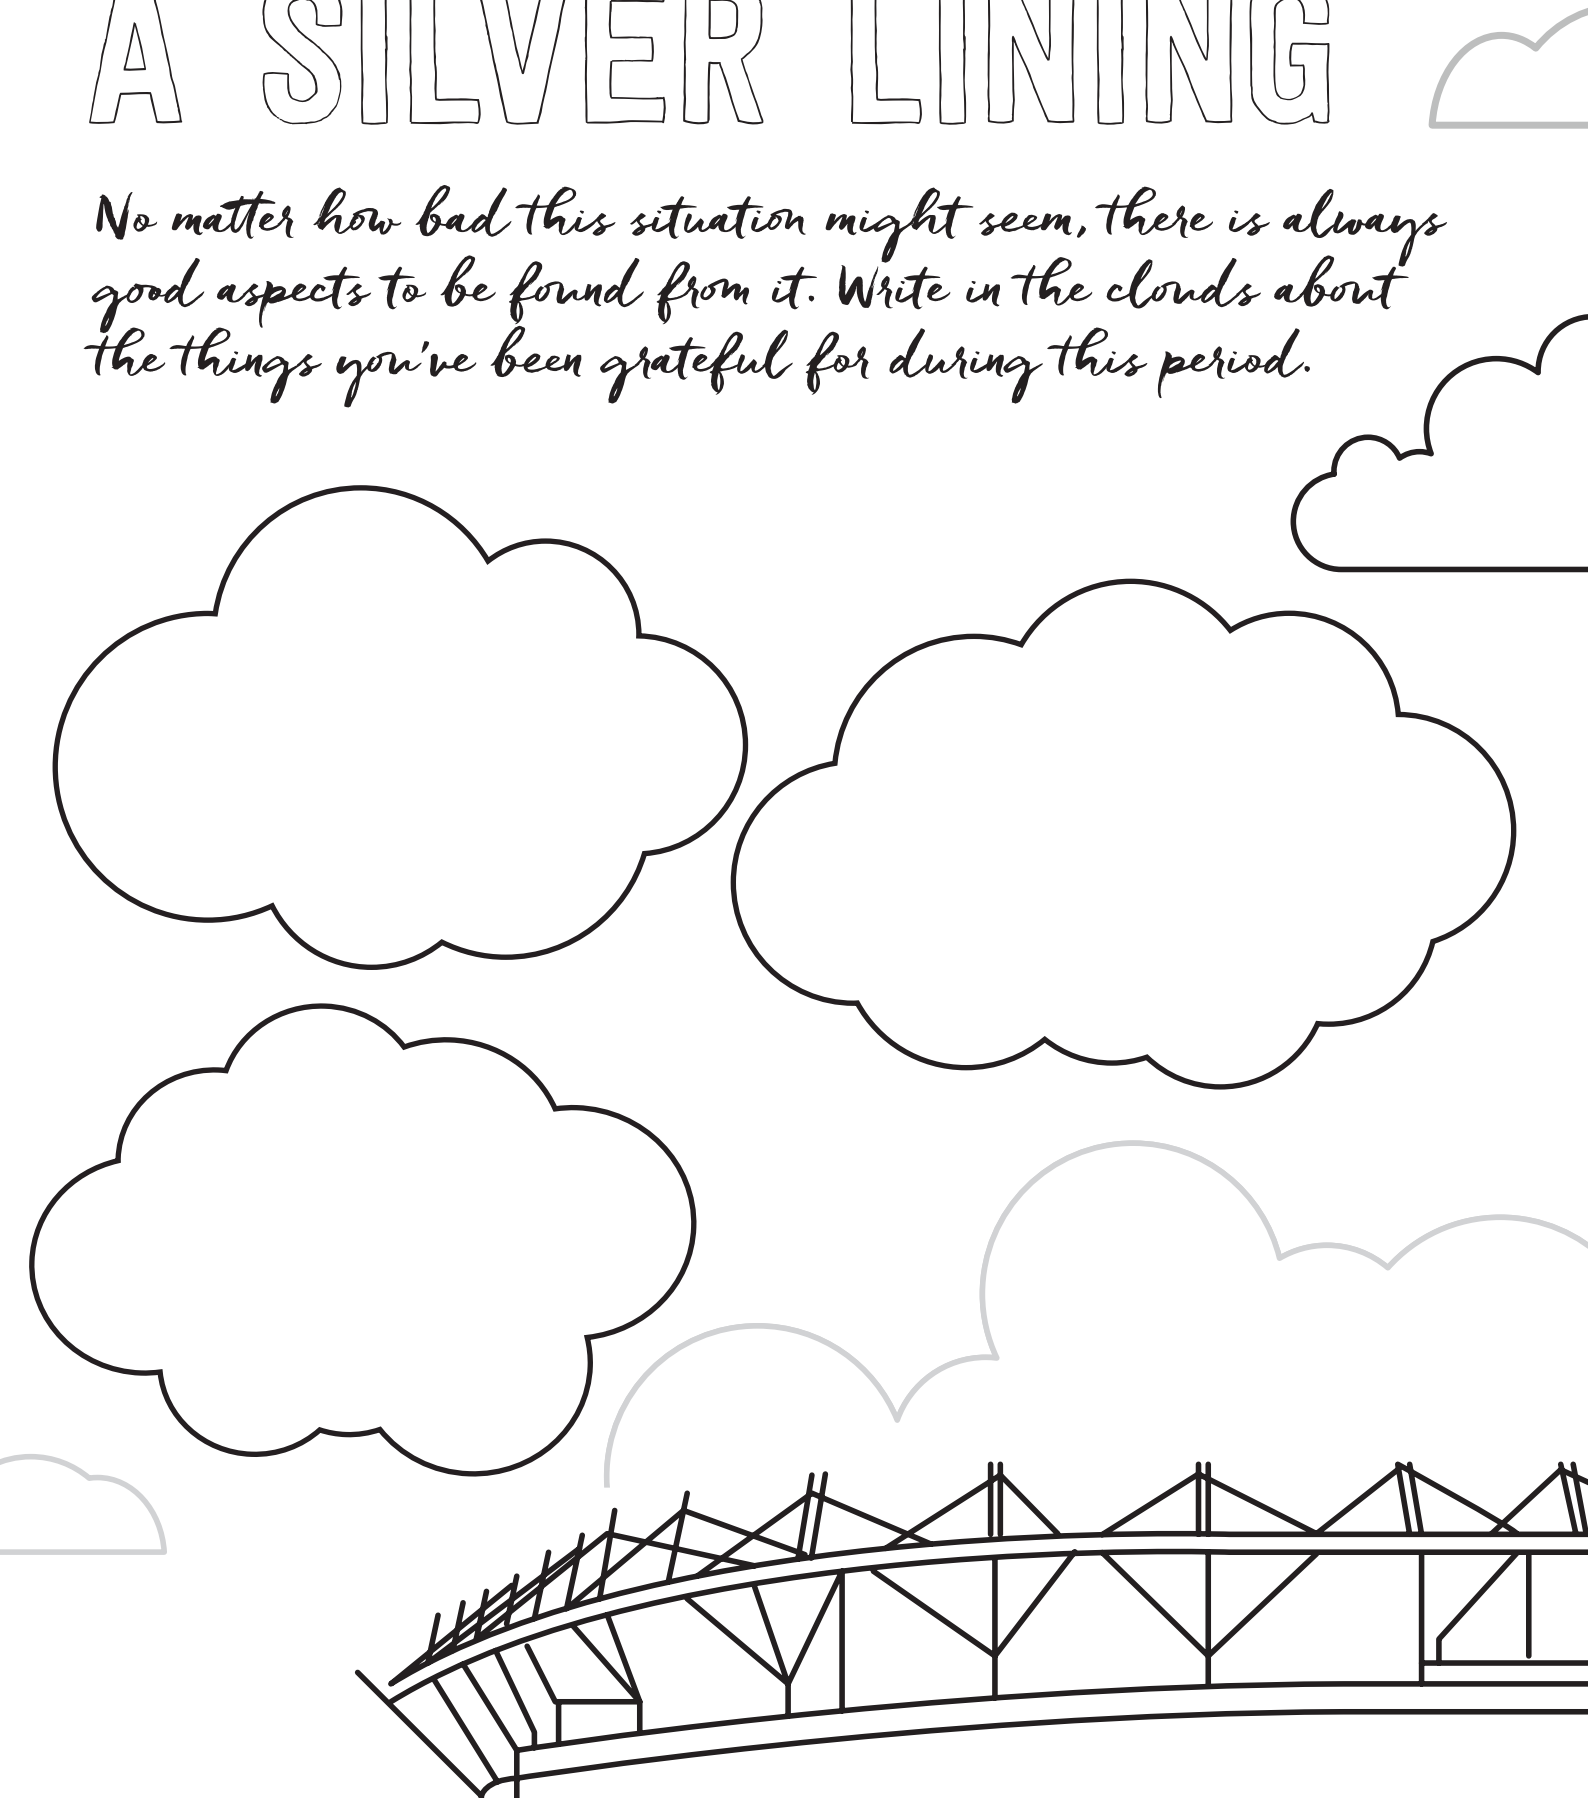 A SILVER LINING
No matter how bad this situation might seem, there is always
good aspects to be found from it. Write in the clouds about
the things you've been grateful for during this period.